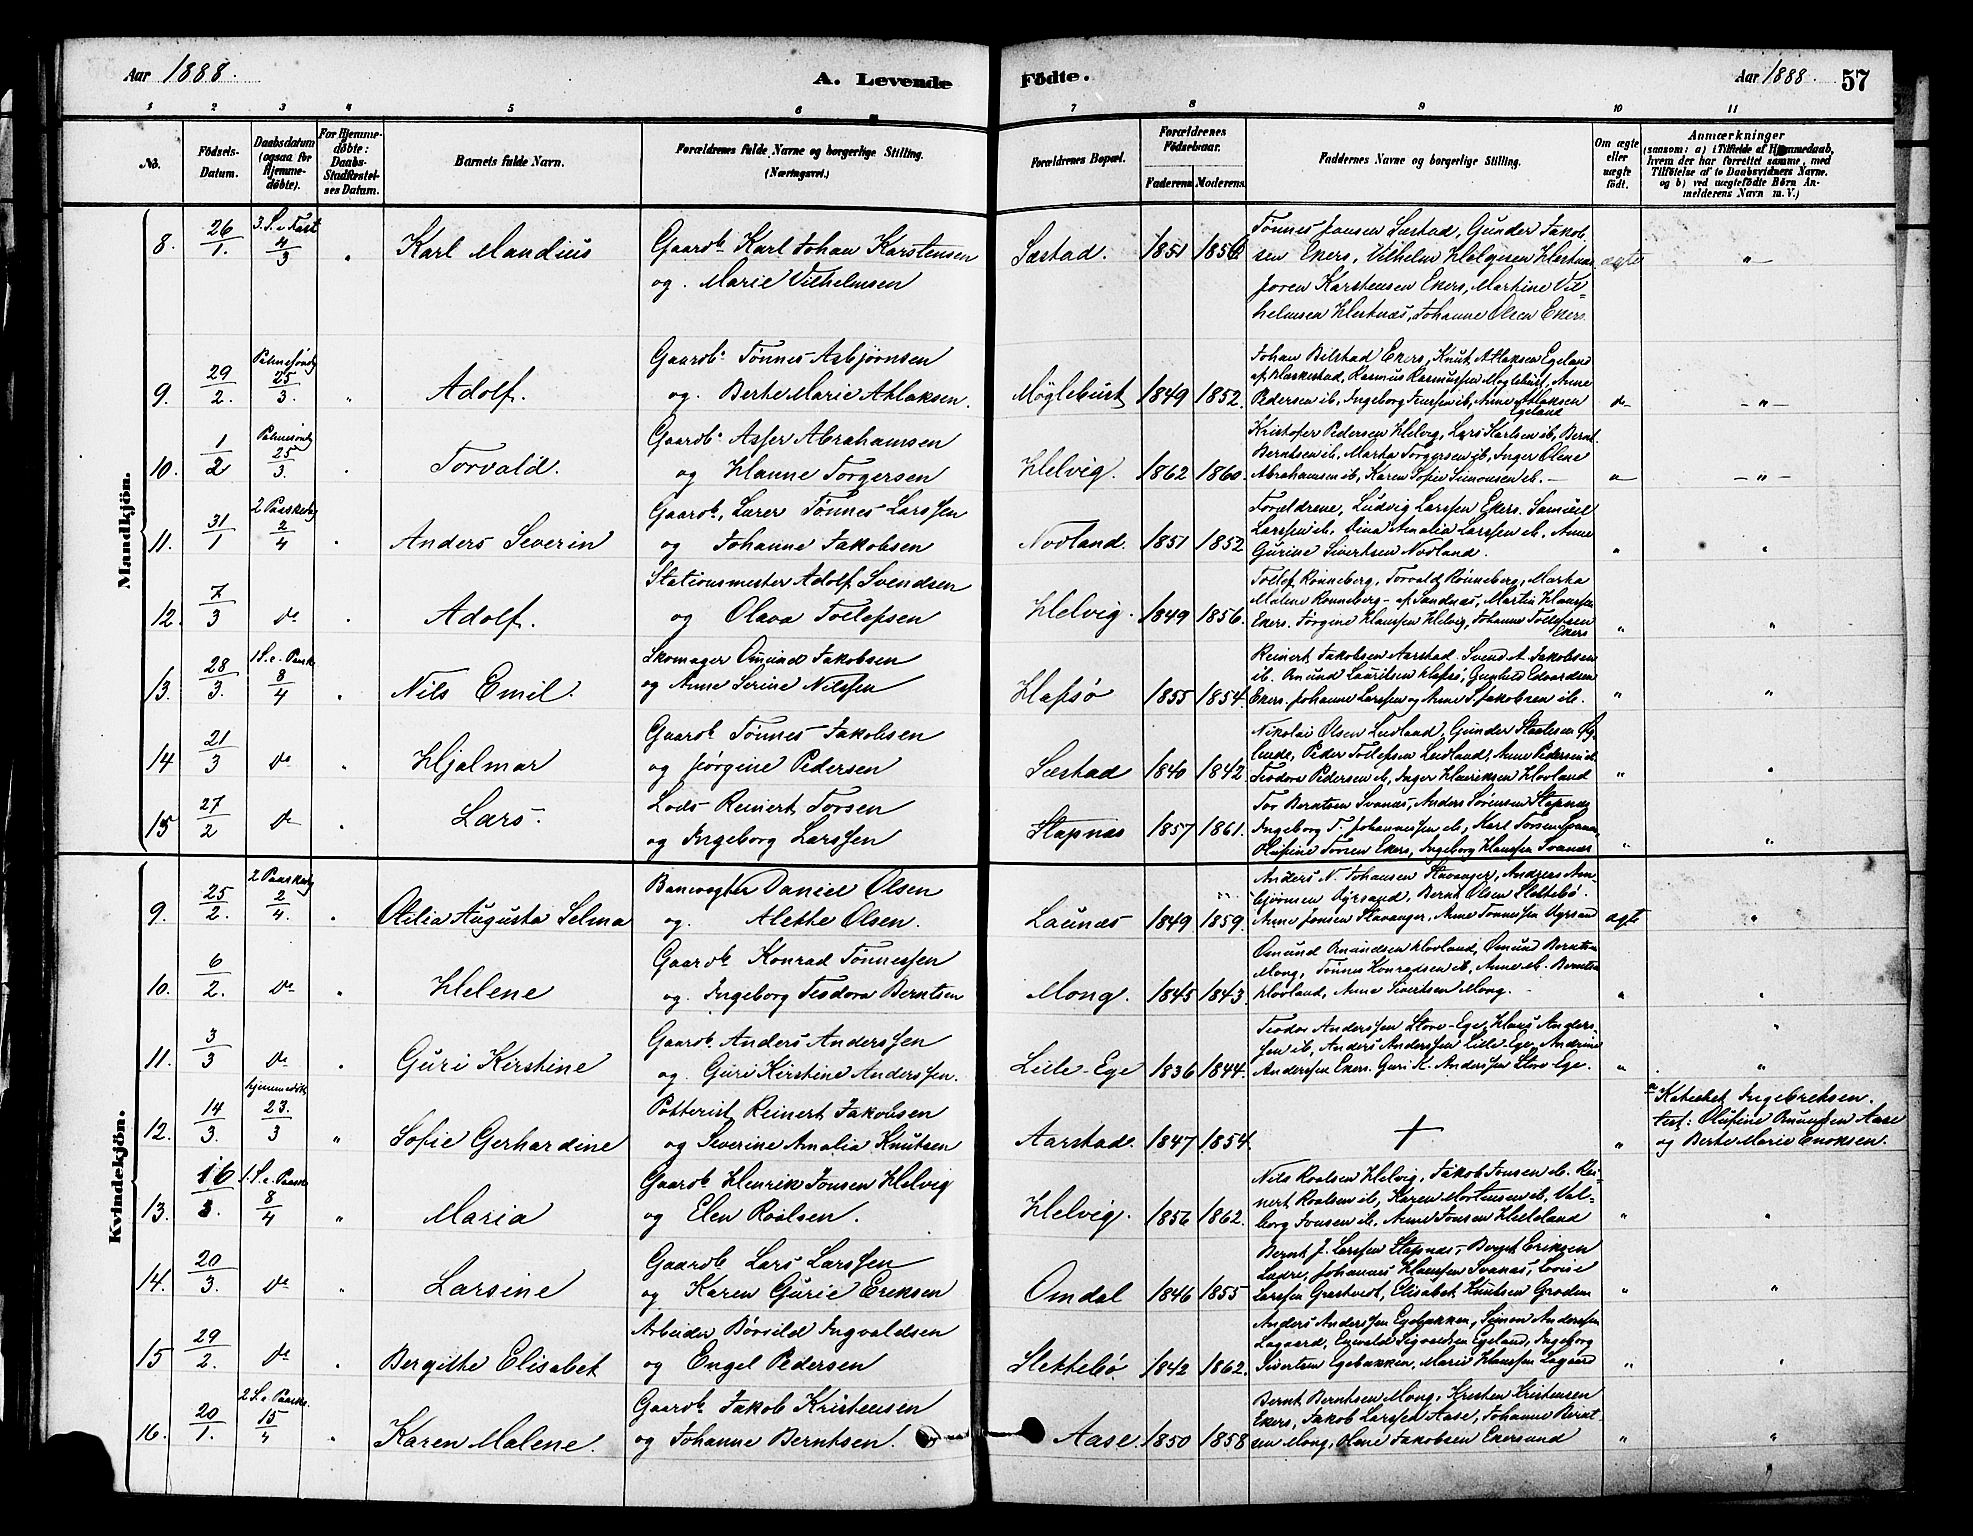 Aar 1888. A. Levende Födte. Aar 1888. 57
1 2 3 4 5 6 7 8 9 10 11
No. Födsels-Datum. Daabsdatum (ogsaa for Hjemmedöbte). For Hjemmedöbte: Daabs-Stadfæstelses Datum. Barnets fulde Navn. Forældrenes fulde Navne og borgerlige Stilling. (Næringsvei.) Forældrenes Bopæl. Forældrenes Födselsaar. Faderens. Moderens. Faddernes Navne og borgerlige Stilling. Om ægte eller uægte födt. Anmærkninger (saasom: a) i Tilfælde af Hjemmedaab, hvem der har forrettet samme, med Tilföielse af to Daabsvidners Navne. og b) ved uægtefödte Börn Anmelderens Navn m. V.)
Mandkjön.
8. 26/1. 3. S. i Fast 4/3 " Karl Mandius Gaardb. Karl Johan Karstensen
og Marie Vilhelmsen Sæstad. 1851 1856
Tönnes Jansen Sæstad, Gunder Jakob
sen Ekers, Vilhelm Helgesen Hestnæs ægte "
Joren Karstensen Ekers, Martine Vil=
helmsen Hestnæs, Johanne Olsen Ekers.
9. 29/2. Palmesöndg 25/3. " Adolf. Gaardb. Tönnes Asbjörnsen
og Berte Marie Atlaksen. Möglebust 1849 1852.
Johan Bilstad Ekers, Knut Atlaksen Egeland
Rasmus Rasmussen Möglebust, Anne
Pedersen ib, Ingeborg Jenssen ib, Anne Atlaksen Egeland do "
10. 1/2 Palmesöndg 25/3. " Torvald. Gaardb. Asser Abrahamsen
og Hanne Torgersen Helvig. 1862 1860.
Kristofer Pedersen Helvig, Lars Karlsen ib, Bernt
Berntsen ib, Marta Torgersen ib, Inger Olene
Abrahamsen ib, Karen Sofie Simonsen ib. "
11. 31/1 2 Paaskedg 2/4 " Anders Severin Gaardb, Lærer Tönnes Larssen
og Johanne Jakobsen Nodland. 1851 1852
Foreldrene, Ludvig Larssen Ekers. Samuel
Larssen ib. Dina Amalia Larssen ib. Anne
Gurine Sivertsen Nodland. " "
12. 7/3 do " Adolf. Stationsmester Adolf Svendsen
og Olava Tollefsen Helvig. 1849 1856.
Tollef Rönneberg, Torvald Rönneberg, Marta
Malene Rönneberg - af Sandnæs, Martin Hanssen
Ekers. Jörgine Hanssen Helvig, Johanne Tollefsen Ekers " "
13. 28/3. 1 S. e. Paask. 8/4 " Nils Emil. Skomager Omund Jakobsen
og Anne Serine Nilssen Hafsö 1855 1854.
Reinert Jakobsen Aarstad. Svend A. Jakobsen
ib. Omund Lauritsen Hafsö, Gunhild Edvardsen
Ekers. Johanne Larssen og Anne S. Jakobsen ib. " "
14 21/3 do " Hjalmar Gaardb Tönnes Jakobsen
og Jörgine Pedersen Sæstad 1840 1842.
Nikolai Olsen Leidland, Gunder
Peder Tollefsen Leidland, Anne Pedersen ib
Teodora Pedersen ib, Inger Henriksen Hovland " "
15 27/2 do " Lars. Lods Reinert Torsen
og Ingeborg Larssen Stapnæs 1857 1861.
Tor Berntsen Svanæs, Anders Sörensen Stapnæs
Ingeborg T. Johannessen ib, Karl Torsen Svanæs
Olufine Torsen Ekers, Ingeborg Hanssen Svanæs " "
Kvindekjön.
9. 25/2. 2 Paaskedg 2/4. " Otilia Augusta Selma Banevogter Daniel Olsen
og Alethe Olsen. Launæs 1849 1859.
Anders N. Johansen Stavanger, Andreas
Bernt Olsen Slettebö.
Anne Jonsen Stavanger, Anne Tönnessen ægte "
10. 6/2. do " Helene Gaardb Konrad Tönnessen
og Ingeborg Teodora Berntsen Mong. 1845 1843.
Omund Omundsen Hovland, Omund Berntsen
Mong, Tönnes Konradsen ib, Anne M. Berntsen
Hovland, Anne Sivertsen Mong. " "
11. 3/3 do " Guri Kirstine Gaardb. Anders Anderssen
og Guri Kirstine Anderssen. Lille-Ege 1836 1844.
Teodor Anderssen Store-Ege, Hans Anders-
sen ib, Anders Anderssen Lille Ege, Andrine
Anderssen Ekers. Guri K. Anderssen Store Ege. " "
12. 14/3. hjemmedöbt 23./3 " Sofie Gerhardine Potterist Reinert Jakobsen
og Severine Amalia Knutsen Aarstad. 1847 1854. + "
Kateket Ingebretsen.
test: Olufine Omundsen Aase
og Berte Marie Enoksen.
13. 16/3. 1. S. e. Paaske 8/4 " Maria Gaardb Henrik Jonsen Helvig
og Elen Roalsen. Helvig. 1856 1862.
Nils Roalsen Helvig, Jakob Jonsen ib. Rei-
nert Roalsen ib, Karen Mortensen ib, Val-
borg Jonsen ib, Anne Jonsen Helleland " "
14. 20/3. do " Larsine Gaardb Lars Larssen
og Karen Gurie Eriksen Omdal 1846 1855
Bernt J. Larssen Stapnæs, Berent Eriksen
Ladre, Johannes Hanssen Svanæs, Lovise
Larssen Grastveit, Elisabet Knutsen Grödem " "
15 29/2. do " Bergitte Elisabet Arbeider Börsild Ingvaldsen
og Engel Pedersen Slettebö 1842 1862.
Anders Anderssen Egebakken, Simon Anderssen
Lagaard, Enevald Sigvaldsen Egeland, Ingeborg
Sivertsen Egebakken, Marie Hanssen Lagaard " "
16. 20/1. 2 S. e. Paaske. 15/4 " Karen Malene. Gaardb Jakob Kristensen
og Johanne Berntsen. Aase. 1850 1858
Bernt Berntsen Mong, Kresten Kristensen
Ekers, Jakob Larssen Aase, Johanne Bernt
sen Mong, Olene Jakobsen Ekersund " "